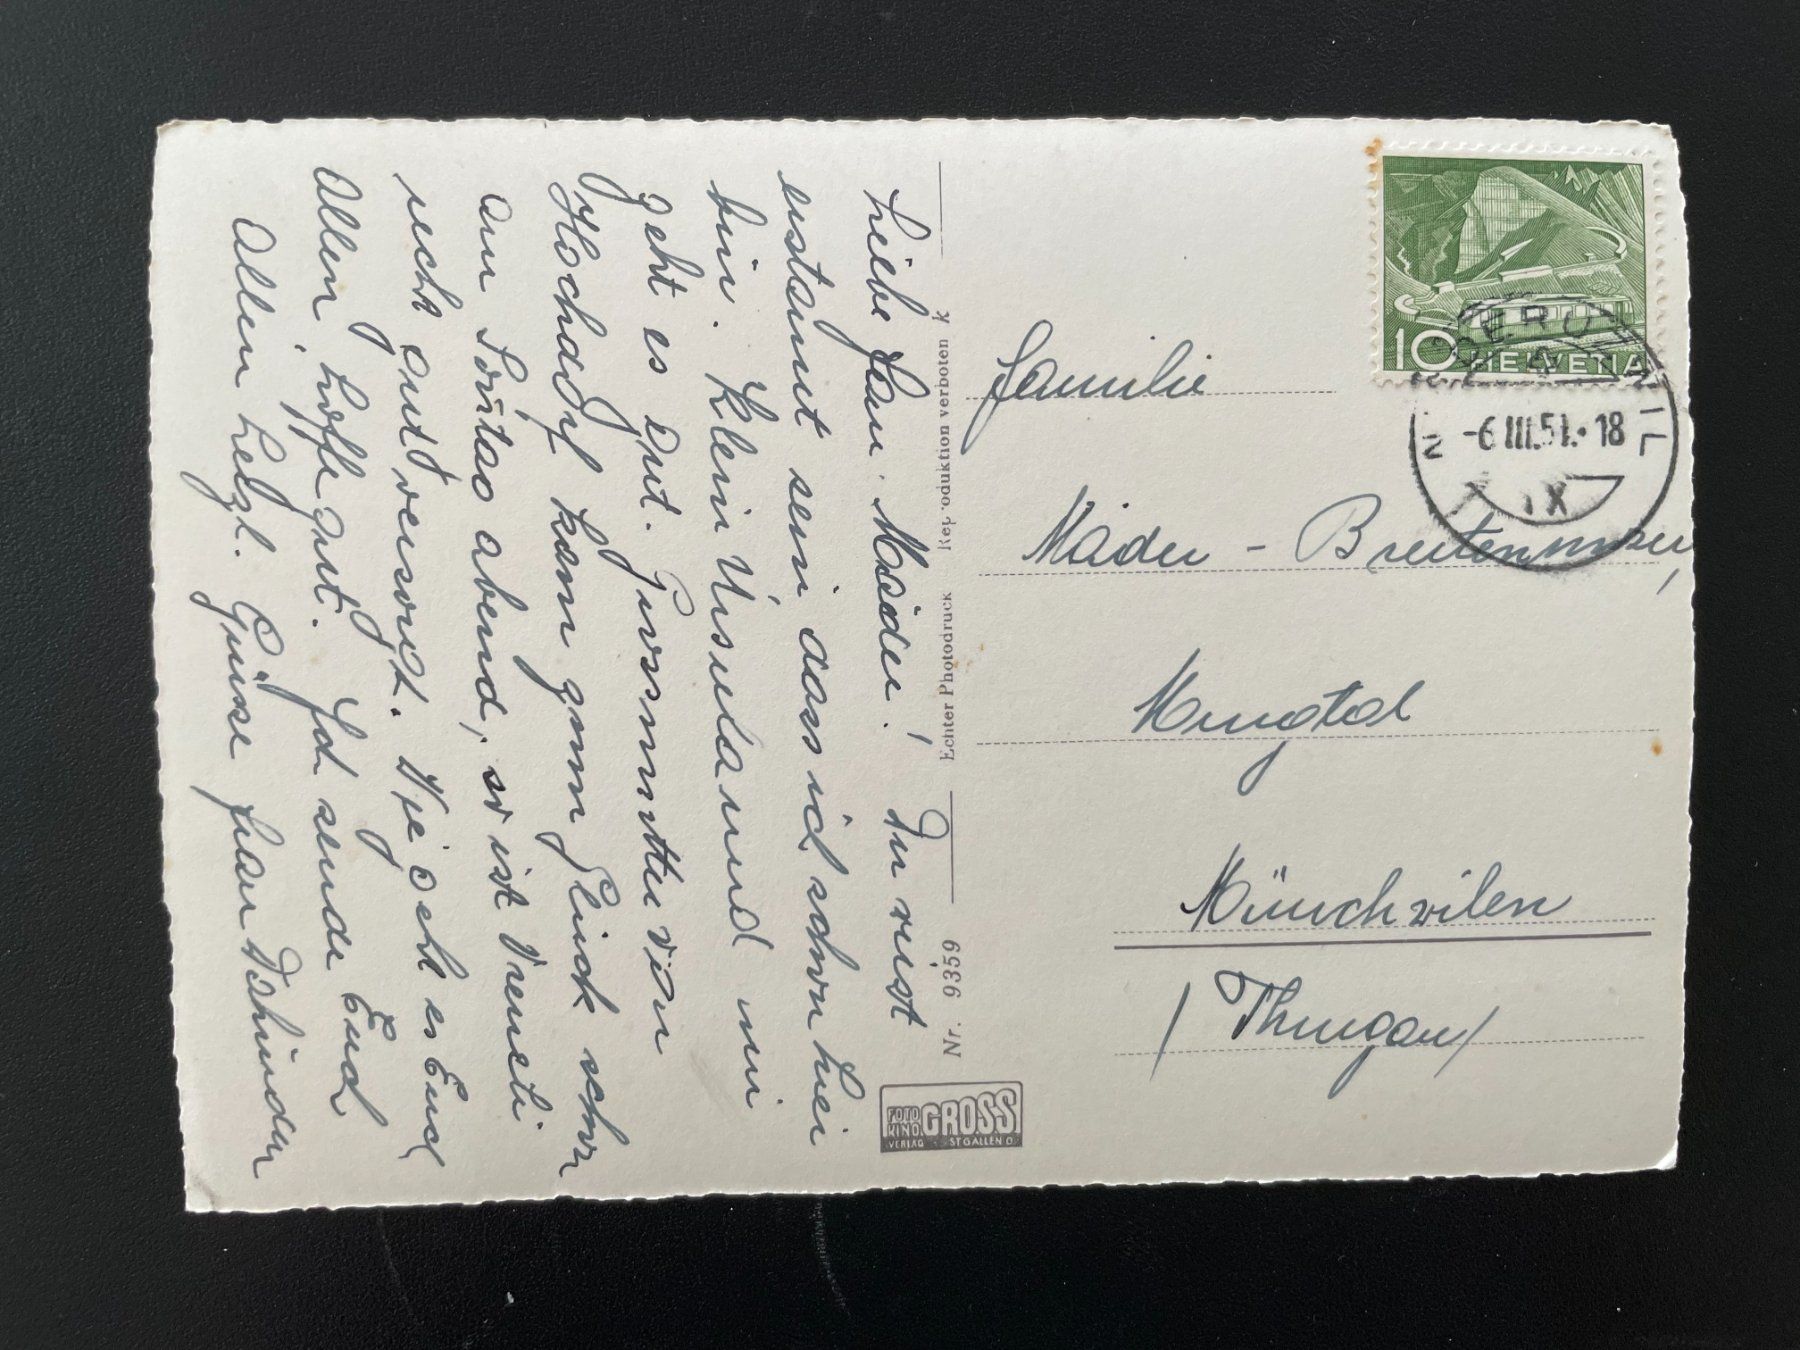 Liebe Frau Mäder! Du wirst
erstaunt sein dass ich schon hier
bin. Klein Ursula und mir
geht es gut. Grossmutter von
Hochdorf kam zum Glück schon
am Sonntag abend, so ist Vreneli
recht gut versorgt. Wie geht es Euch
Allen, hoffe gut. Ich sende Euch
Allen herzl. Grüsse Frau Dahinden
Echter Photodruck Reproduktion verboten k
Nr. 9359
FOTO KINO GROSS
VERLAG ST. GALLEN O
10 HELVETIA
-6.III.51.-18
IX
Familie
Mäder - Breitenmoser
Murgtal
Münchwilen
/Thurgau/